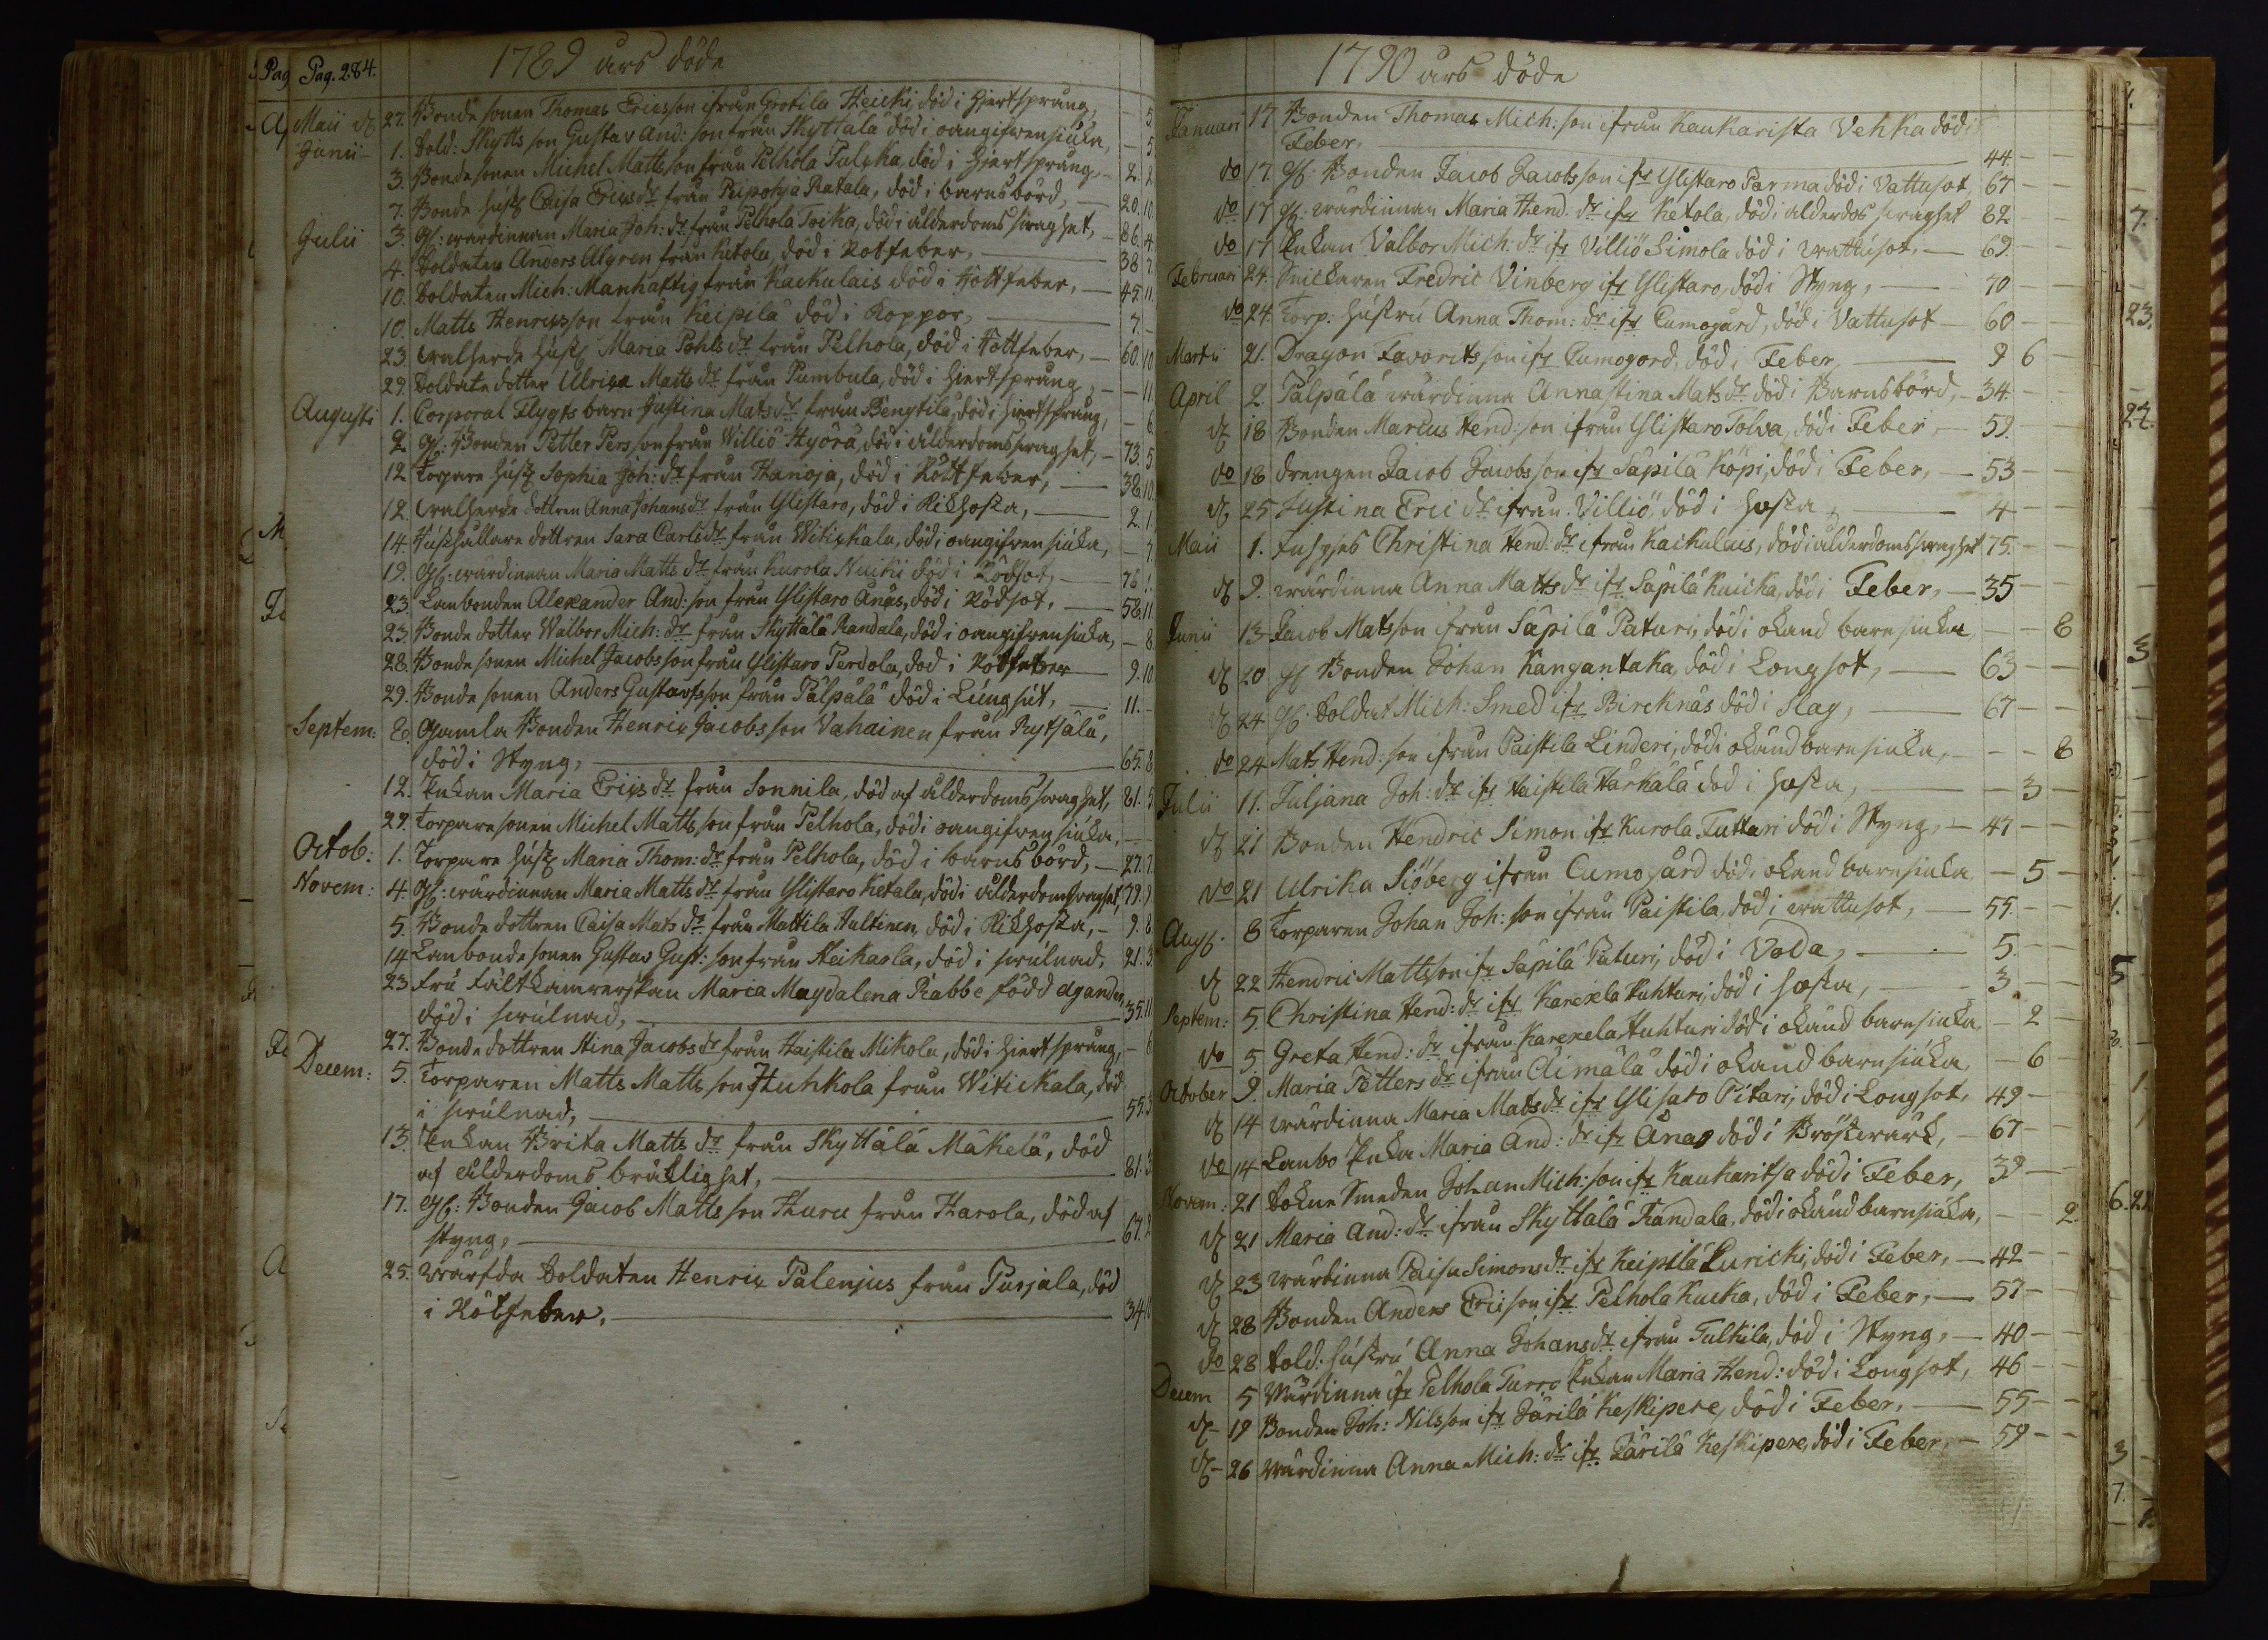 Pag. 284.
1789 års döde
Maii 27. Bonde sonen Thomas Ericsson ifrån Grotila Heicki, död i hiertsprång, – 5
Junii 1. Sold: Skytts son Gustav And: son från Skyttälä död i oangifven siuka, – 5
3. Bonde sonen Michel Mattsson från Pelhola Pulcka, död i hiertsprång, 2. 2
7. Bonde hust Caisa Ericsdr från Pripohja Ratala, död i barnsbörd, 20. 10.
Julii 3. Gl: wärdinnan Maria Joh: dr från Pelhola Toika, död i ålderdoms swaghet, 86. 4
4. Soldaten Anders Algren från Ketola, död i Rötfeber, 38 7.
10. Soldaten Mich: Manhaftig från Kackulais död i Röttfeber, 45. 11.
10. Matts Henricsson från Keipilä död i Koppor, 7. –
23. walherde hust Maria Pohls dr från Pelhola, död i Rottfeber, 60. 10
29. Soldate dotter Ulrica Matts dr från Pumbula, död i hiertsprång, – 11.
Augusti 1. Corporal Flygts barn Justina Matsdr från Bengtilä, död i hiertsprång, – 6
2. Gl: Bonden Petter Persson från Williö Hyörä, död i ålderdomsswaghet, 73. 5
12. Torpare hust Sophia Joh: dr från Hanoja, död i Röttfeber, 38. 10.
12. walherde dottren Anna Johansdr från Ylistaro, död i Rikhosta, 2. 1.
14. Hushållare dottren Sara Carlsdr från Witickala, död i oangifven siuka, – 7.
19. Gl: wärdinnan Maria Matts dr från Kurola Nuiki död i Rödsot, 76 1.
23. Lanbonden Alexander And: son från Ylistaro Anäs, död i Rödsot, 58. 11.
23. Bonde dotter Walbor Mich: dr från Skyttälä Randala, död i oangifven siuka, – 8
28. Bonde sonen Michel Jacobsson från Ylistaro Perdola, död i Rötfeber 9. 10.
29. Bonde sonen Anders Gustavsson från Pälpälä död i Lungsút, 11. –
Septem: 8. Gamla Bonden Henric Jacobsson Vahainen från Rytsälä,
död i Styng, 65. 8
12. Enkan Maria Ericsdr från Sonnila, död af ålderdomsswaghet, 81. 5
29. Torpare sonen Michel Mattsson från Pelhola, död i oangifven siuka, –
Octob: 1. Torpare hust Maria Thom: dr från Pelhola, död i barnsbörd, 27. 7.
Novem: 4. Gl: wärdinnan Maria Matts dr från Ylistaro Ketala, död i ålderdomswaghet, 79. 9
5. Bonde dottren Caisa Mats dr från Mattila Hultinen, död i Rikhosta, 9. 8
14 Lanbonde sonen Gustav Gust: son från Heikaola, död i swulnad, 21. 3.
23 Fru Fältkamrerskan Maria Magdalena Rabbe född Agander,
död i swulnad, 35. 11
27. Bonde dottren Stina Jacobs dr från Haistila Mikola, död i hiertsprång, – 6
Decem: 5. Torparen Matts Mattsson Huhkola från Witickala, död
i swulnad, 55. 3
13. Enkan Brita Matts dr från Skyttälä Mäkelä, död
af ålderdoms bräklighet, 81. 3
17. Gl: Bonden Jacob Mattsson Huru från Harola, död af
styng, 67. 2
25. wärfda Soldaten Henric Palenius från Pusjala, död
i Rötfeber. 34.
1790 års döde
Januari 17 Bonden Thomas Mich: son ifrån Kaukarista Vehka död i
Feber. 44. – –
do 17. Gl: Bonden Jacob Jacobsson ifr Ylistaro Parma död i Vattusot, 67 – –
do 17 Gl: wärdinnan Maria Hend: dr ifr Ketola, död i alderdos swaghet 82 – –
do 17 Enkan Valbor Mich: dr ifr Villiö Simola död i wattusot, 69. – –
Februari 24. Snickaren Fredric Vinberg ifr Ylistaro, död i Styng, 70 – –
do 24. Torp: hustru Anna Thom: dr ifr Cumogård, död i Vattusot 60 – –
Martii 21. Dragon Favorits son ifr Cumogord, död i Feber 9 6 –
April 2. Pälpälä wärdinna Anna Stina Mats dr död i Barnsbörd, 34. – –
18 Bonden Marcus Hend: son ifrån Ylistaro Tolva, död i Feber, 59. – –
do 18 drengen Jacob Jacobsson ifr Säpilä Köpi, död i Feber, 53 – –
25 Justina Eric dr ifrån Villiö, död i hosta, 4 – –
Maii 1. Inhyses Christina Hend: dr ifrån Kackulais, död i ålderdomsswaghet 75. – –
9. wärdinna Anna Matts dr ifr Säpilä Kuicka, död i Feber, 35 – –
Junii 13 Jacob Matsson ifrån Säpilä Paturi, död i okänd barnsiuka – – 8
20 Gl Bonden Johan Kangantaka, död i Longsot, 63 – –
24 Gl: Soldat Mich: Smed ifr Bircknäs död i Slag, 67 – –
do 24 Mats Hend: son ifrån Paistila Linderi, död i okänd barnsiuka, – – 8
Julii 11. Juljana Joh: dr ifr Haistila Härkälä död i hosta, – 3 –
21 Bonden Hendric Simon ifr Kurola Tuttari död i Styng, 47 – –
do 21 Ulrika Siöberg ifrån Cumogård död i okänd barnsiuka – 5 –
Aug. 8 Torparen Johan Joh: son ifrån Paistila, död i wattusot, 55. – –
22 Hendric Mattsson ifr Säpilä Paturi, död i Voda, 5 – –
Septem: 5. Christina Hend: dr ifr Karexela Huhturi, död i hosta, 3. – –
do 5 Greta Hend: dr ifrån Karexela Huhturi död i okänd barnsiuka, – 2 –
October 9. Maria Petters dr ifrån Äimälä död i okänd barnsiuka, – 6 –
14 wärdinna Maria Matsdr ifr Ylistaro Pitari, död i Longsot, 49 –
do 14 Lanbo Enka Maria And: dr ifr Ånäs död i Bröstwärk, 67 – –
Novem: 21 Sokne Smeden Johan Mich: son ifr Kaukaritsa död i Feber, 39 –
21 Maria And: dr ifrån Skyttälä Randala, död i okänd barnsiuka, – – 2.
23 wärdinna Caisa Simons dr ifr Keipilä Luricki, död i Feber, 42 – –
28 Bonden Anders Ericson ifr Pelhola Kucka, död i Feber, 57 –
do 28 Sold: hustru Anna Johansdr ifrån Tulkila, död i Styng, 40 – –
Decem 5 Wärdinna ifr Pelhola Turro Enkan Maria Hend: död i Longsot, 46 –
19 Bonden Joh: Nilsson ifr Järilä Keskipere, död i Feber, 55 – –
26 wärdinna Anna Mich: dr ifr Järilä Keskipere, död i Feber, 59 – –